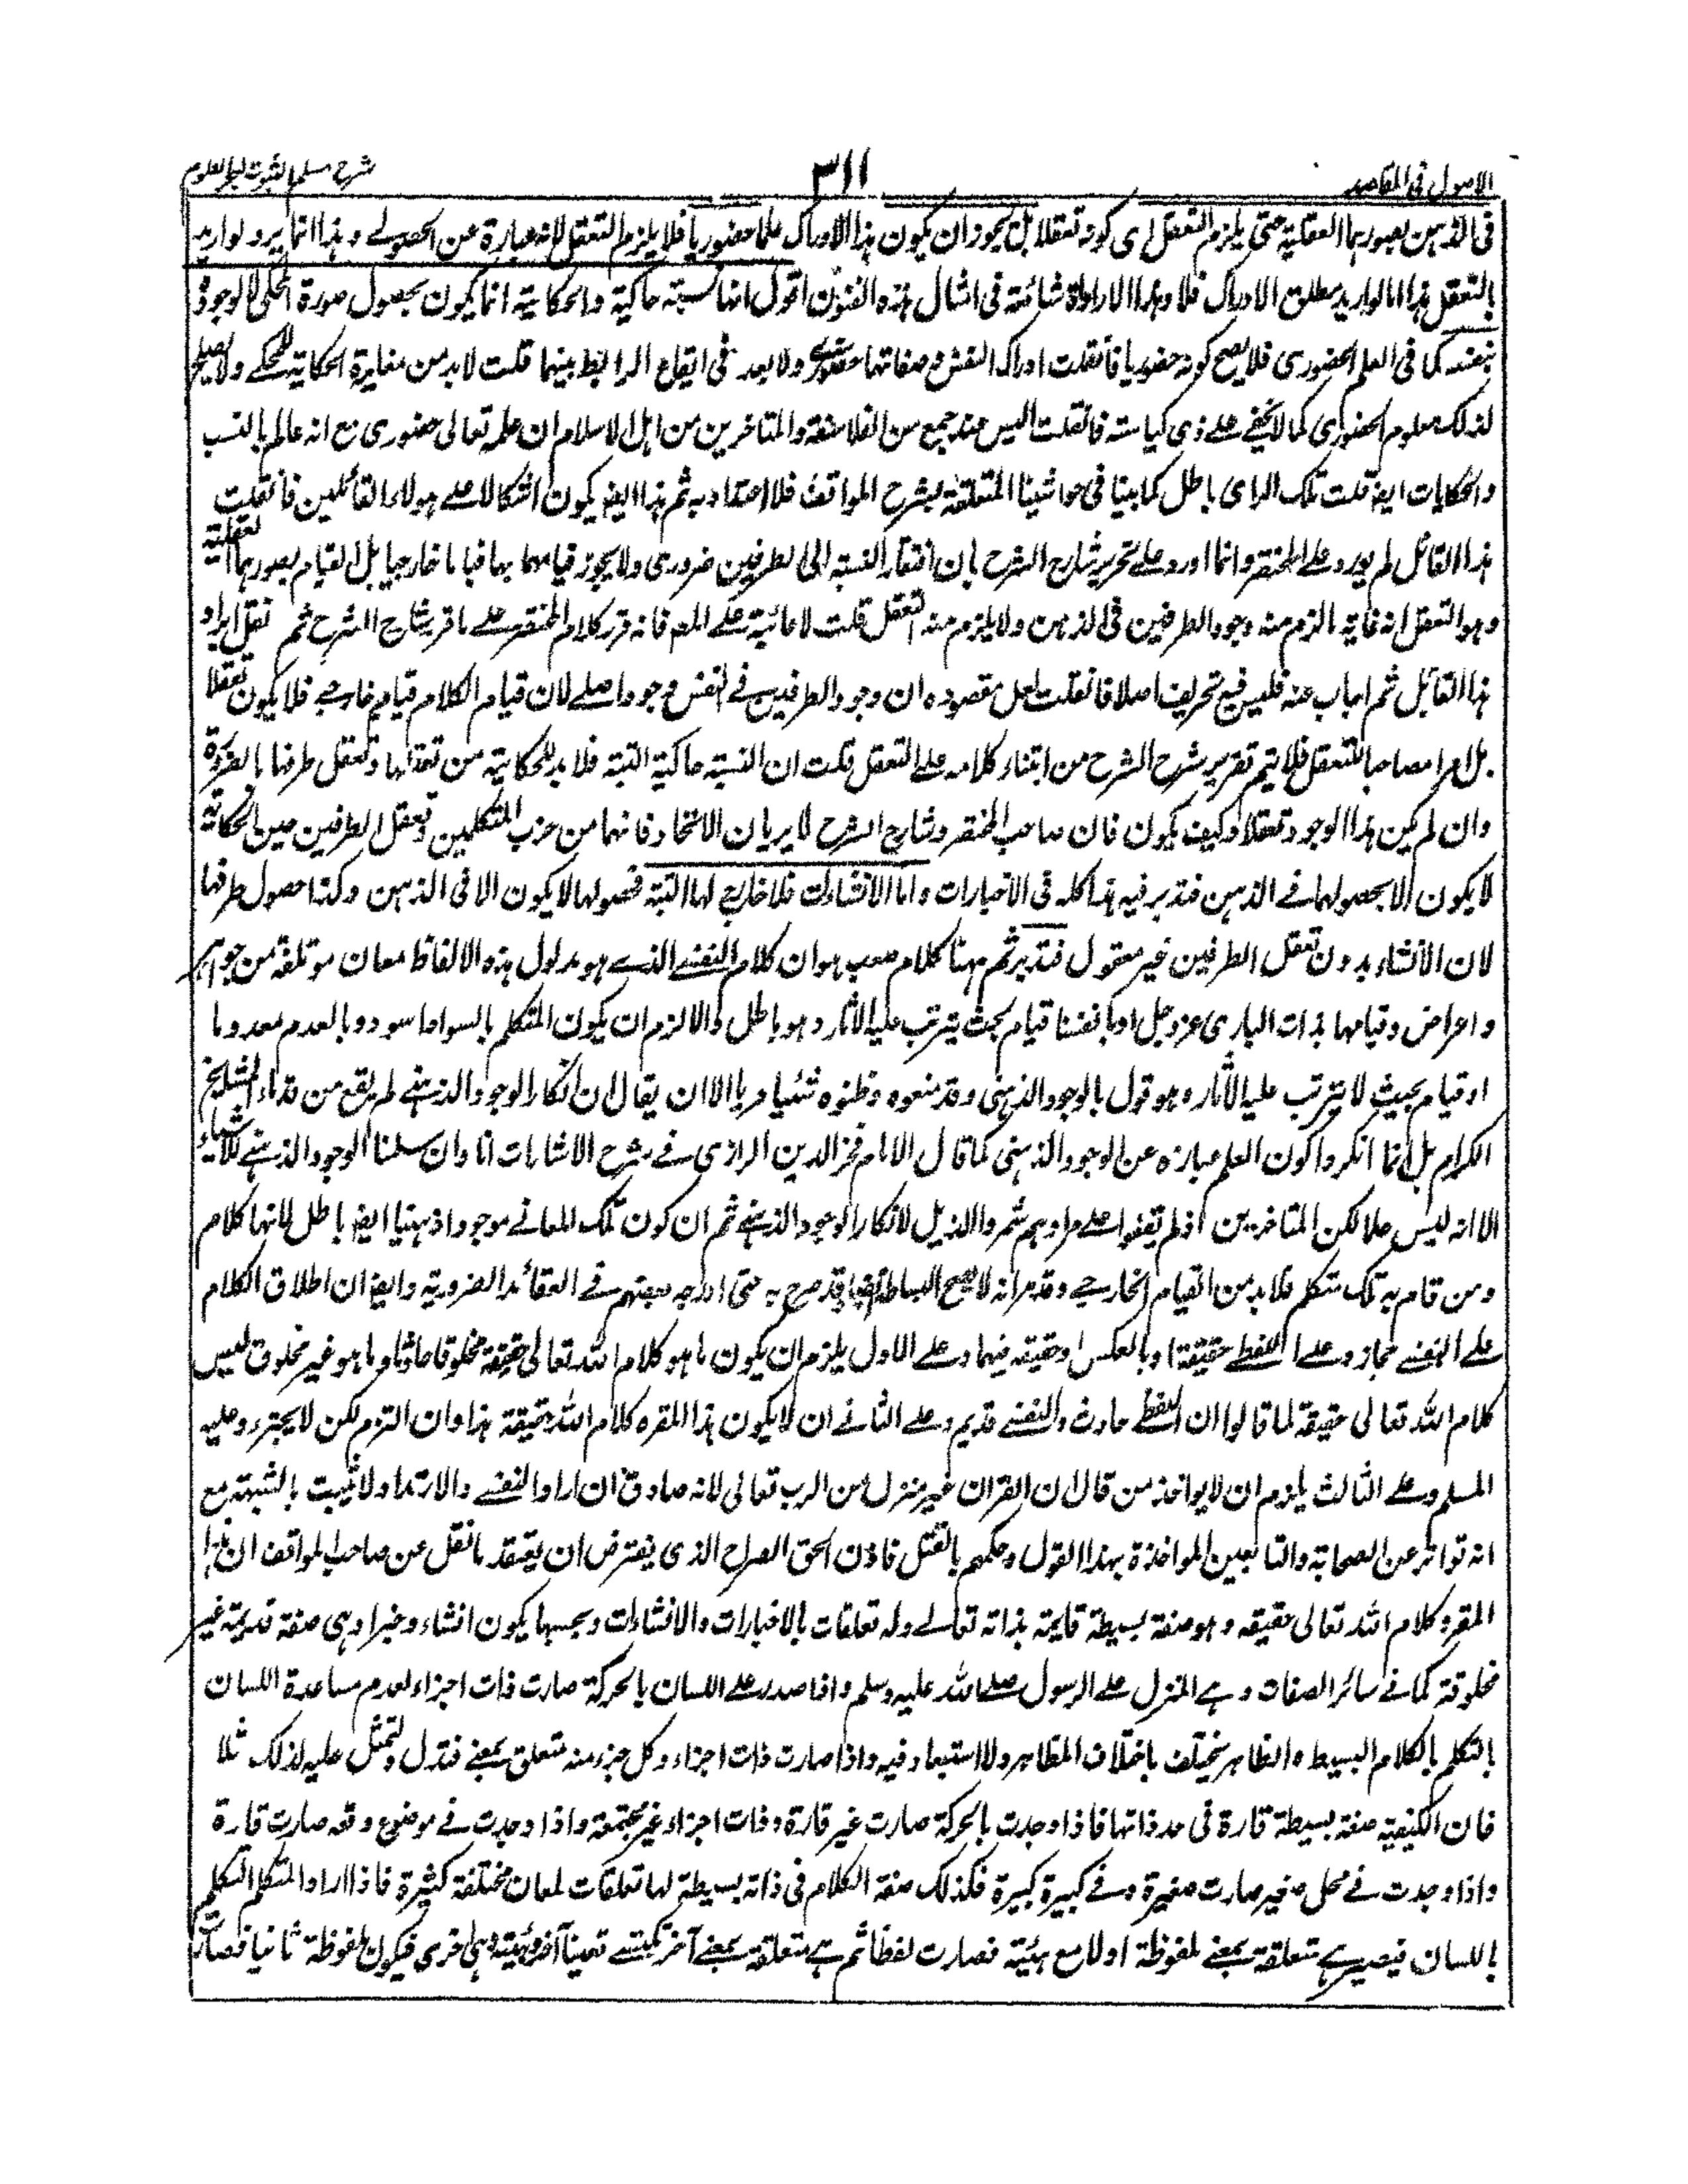 الاصول فى المقاصد
٣١١
شرح مسلم الثبوت لبحر العلوم
فى الذهن بصورهما العقلية حتى يلزم التعقل اى كونه تعقلا بل يجوز ان يكون هذا الادراك علما حضوريا فلا يلزم التعقل لانه عبارة عن الحصولے وهذا انما يرد لو اريد
بالتعقل هذا اما لو اريد مطلق الادراك فلا وهذا الارادة شائعة فى امثال هذه الفنون اقول انها نسبة حاكية والحكاية انما يكون بحصول صورة المحكى لا لوجوده
بنفسه كما فى العلم الحضورى فلا يصح كونه حضوريا فانقلت ادراك النفس وصفاتها حضورے ولا بعد فى ايقاع الرابط بينهما قلت لا بد من مغايرة الحكاية للمحكے ولا يصلح
لذلك معلوم الحضورى كما لا يخفے علے ذى كياسة فانقلت اليس عند جمع من الفلاسفة والمتاخرين من اهل الاسلام ان علمه تعالى حضورى مع انه عالم بالنسب
والحكايات ايضا قلت تلك الراى باطل كما بينا فى حواشينا المتعلقة بشرح المواقف فلا اعتداد به ثم هذا ايضا يكون اشكالا علے هولاء القائلين فانقلت
هذا القائل لم يورد علے المختصر وانما اورد علے تحرير شارح الشرح بان افتقار النسبة الى الطرفين ضرورى ولا يجوز قيامهما بها قياما خارجيا بل القيام بصورهما العقلية
وهو التعقل انه غاية ما لزم منه وجود الطرفين فى الذهن ولا يلزم منه التعقل قلت لا عائبة علے المصـ فانه قرر كلام المختصر علے ما قرر شارح الشرح ثم نقل ايراد
هذا القائل ثم اجاب عنه فليس فيه تحريف اصلا فانقلت لعل مقصوده ان وجود الطرفين فے النفس وجود اصلے لان قيام الكلام قيام خارجے فلا يكون تعقلا
بل امرا مصاحبا للتعقل فلا يتم تقرير شرح الشرح من ابتناء كلامه علے التعقل قلت ان النسبة حاكية البتة فلا بد للحكاية من تعقلها وتعقل طرفها بالضرورة
وان لم يكن هذا الوجود تعقلا وكيف يكون فان صاحب المختصر وشارح الشرح لا يريان الاتحاد فانهما من حزب المتكلمين وتعقل الطرفين حين الحكاية
لا يكون الا بحصولهما فے الذهن فتدبر فيه هذا كله فى الاخبارات واما الانشاءات فلا خارج لها البتة فحصولها لا يكون الا فى الذهن وكذا حصول طرفها
لان الانشاء بدون تعقل الطرفين غير معقول فتدبر ثم ههنا كلام صعب هو ان كلام النفسے الذے هو مدلول هذه الالفاظ معان موتلفة من جواهر
واعراض وقيامها بذات البارى عز وجل او بانفسنا قيام بحيث يترتب عليه الآثار وهو باطل والا لزم ان يكون المتكلم بالسواد اسود وبالعدم معدوما
او قيام بحيث لا يترتب عليه الآثار وهو قول بالوجود الذهنى وقد منعوه وظنوه شيئا فريا الا ان يقال ان انكار الوجود الذهنے لم يقع من قدماء المشايخ
الكرام بل انما انكروا كون العلم عبارة عن الوجود الذهنى كما قال الامام فخر الدين الرازى فے شرح الاشارات انا وان سلمنا الوجود الذهنے للاشياء
الا انه ليس علما لكن المتاخرين اذ لم يقفوا علے مرادهم شمروا الذيل لانكار الوجود الذهنے ثم ان كون تلك المعانے موجودا ذهنيا ايضا باطل لانها كلام
ومن قام به تلك متكلم فلا بد من القيام الخارجے وقد مر انه لا يصح البساطة ايضا وقد صرح به حتى ادرجه بعضهم فے العقائد الضرورية وايضا ان اطلاق الكلام
علے النفسے مجاز وعلے اللفظے حقيقة او بالعكس او حقيقه فيهما وعلے الاول يلزم ان يكون ما هو كلام الله تعالى حقيقة مخلوقا حادثا وما هو غير مخلوق ليس
كلام الله تعالى حقيقة لما قالوا ان اللفظے حادث والنفسے قديم وعلے الثانے ان لا يكون هذا المقرو كلام الله حقيقة هذا وان التزم لكن لا يجترء عليه
المسلم وعلے الثالث يلزم ان لا يواخذ من قال ان القران غير منزل من الرب تعالى لانه صادق ان اراد النفسے والارتداد لا يثبت بالشبهة مع
انه تواتر عن الصحابة والتابعين المواخذة بهذا القول وحكمهم بالقتل فاذن الحق الصراح الذى يفترض ان يعتقد ما نقل عن صاحب المواقف ان هذا
المقرو كلام الله تعالى حقيقه وهو صفة بسيطة قايمة بذاته تعالے وله تعلقات بالاخبارات والانشاءات وبحسبها يكون انشاء وخبرا وهى صفة قديمة غير
مخلوقة كما فے سائر الصفات وهے المنزل علے الرسول صلے الله عليه وسلم واذا صدر علے اللسان بالحركة صارت ذات اجزاء لعدم مساعدة اللسان
بالتكلم بالكلام البسيط والظاهر يختلف باختلاف المظاهر ولا استبعاد فيه واذا صارت ذات اجزاء وكل جزء منه متعلق بمعنے فتدل وتمثل عليه لذلك مثلا
فان الكيفية صفة بسيطة قارة فى حد ذاتها فاذا وجدت بالحركة صارت غير قارة وذات اجزاء غير مجتمعة واذا وجدت فے موضوع وقه صارت قارة
واذا وجدت فے محل صغير صارت صغيرة وفے كبيرة كبيرة فكذلك صفة الكلام فى ذاته بسيطة لها تعلقات لمعان مختلفة كثيرة فاذا اراد المتكلم التكلم
باللسان فيصير هے متعلقة بمعنے ملفوظة اولا مع هيئية فصارت لفظا ثم هے متعلقة بمعنے آخر تكتسے تعينا آخر وهيئية اخرى فيكون ملفوظة ثانيا فصارت